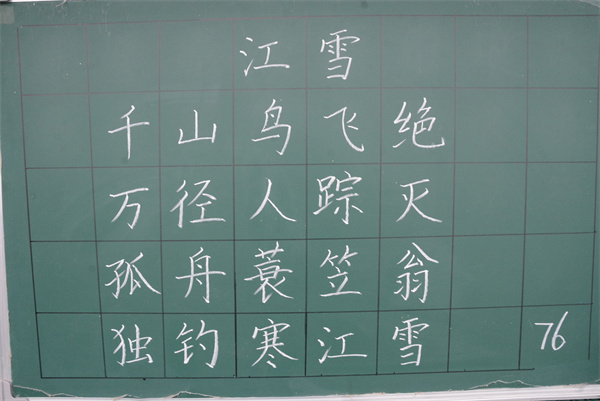 江雪
千山鸟飞绝
万径人踪灭
孤舟蓑笠翁
独钓寒江雪
76